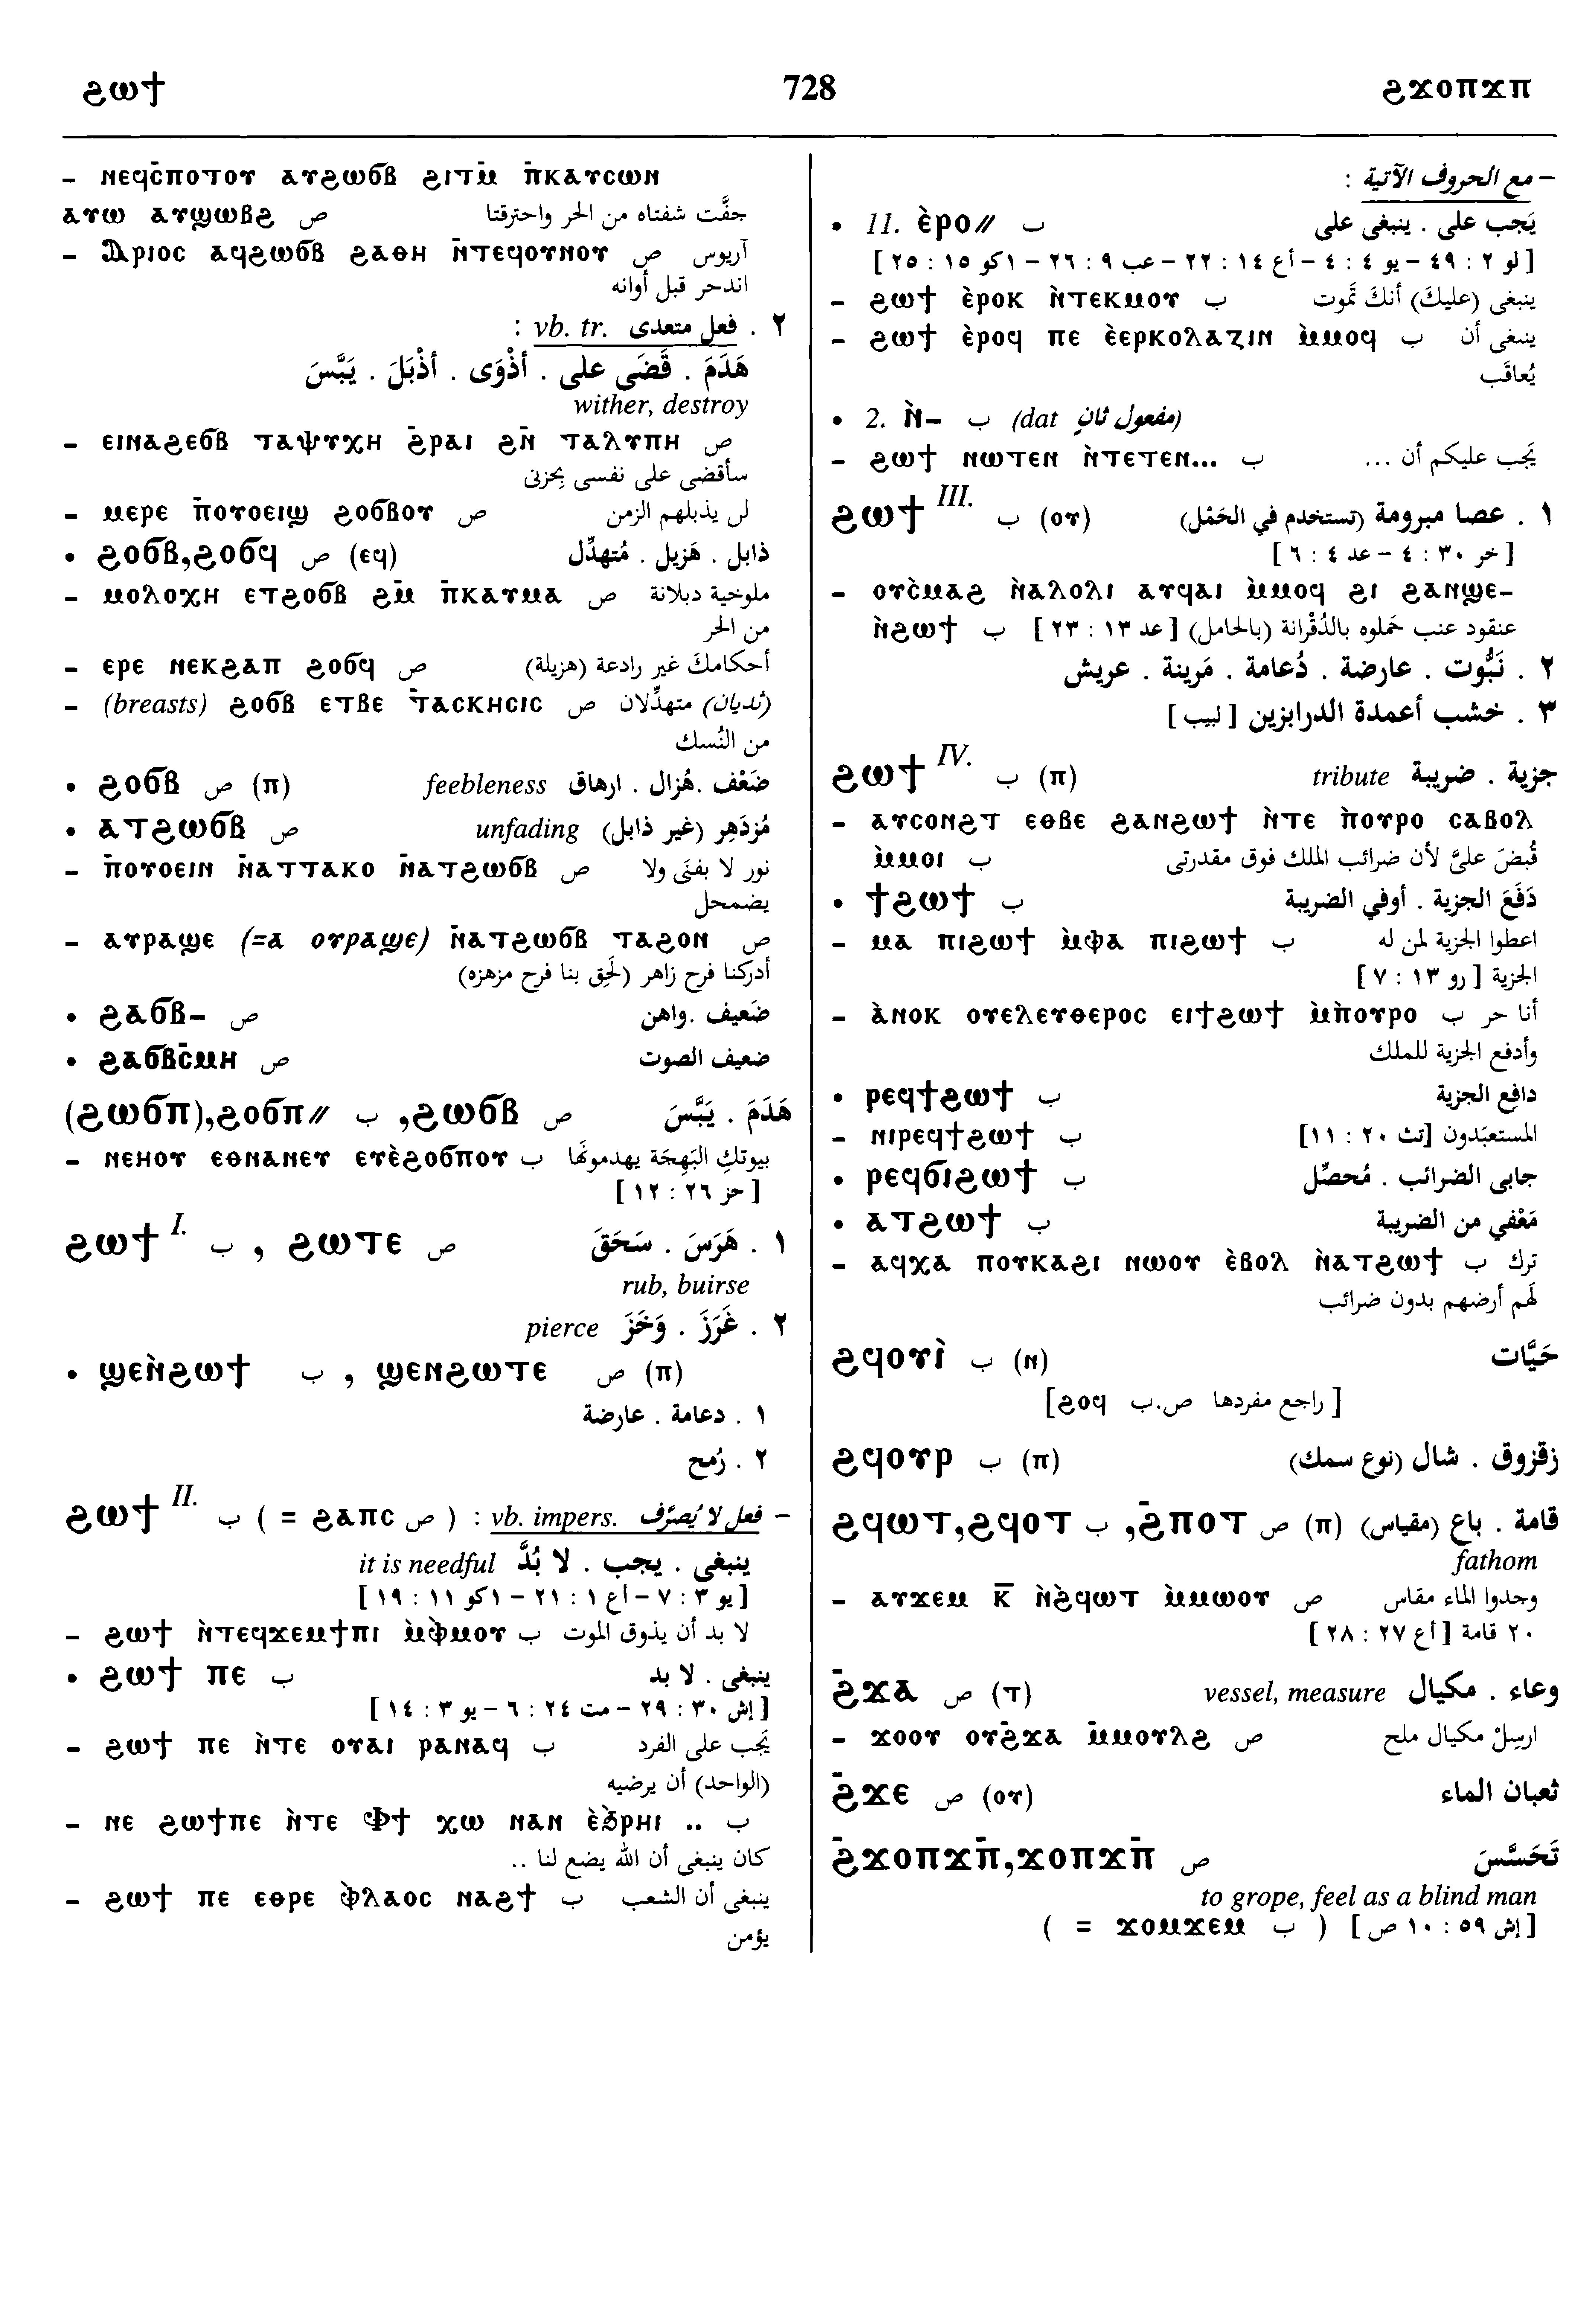 ϩⲱϯ 728 ϩϫⲟⲡϫⲡ
– ⲛⲉϥⲥ̄ⲡⲟⲧⲟⲩ ⲁⲩϩⲱϭⲃ ϩⲓⲧⲙ̄ ⲡ̄ⲕⲁⲩⲥⲱⲛ
ⲁⲩⲱ ⲁⲩϣⲱⲃϩ ص جفَّت شفتاه من الحر واحترقتا
– Ⲁⲣⲓⲟⲥ ⲁϥϩⲱϭⲃ ϩⲁⲑⲏ ⲛ̄ⲧⲉϥⲟⲩⲛⲟⲩ ص آريوس
اندحر قبل أوانه
٢ . فعل متعدى vb. tr. :
هَدَمَ . قَضَى على . أذْوَى . أذْبَلَ . يَبَّسَ
wither, destroy
– ⲉⲓⲛⲁϩⲉϭⲃ ⲧⲁⲯⲩⲭⲏ ϩ̄ⲣⲁⲓ ϩⲛ̄ ⲧⲁⲗⲩⲡⲏ ص
سأقضى على نفسى بِحزنى
– ⲙⲉⲣⲉ ⲡ̄ⲟⲩⲟⲉⲓϣ ϩⲟϭⲃⲟⲩ ص لن يذبلهم الزمن
• ϩⲟϭⲃ,ϩⲟϭϥ ص (ⲉϥ) ذابل . هَزيل . مُتهدِّل
– ⲙⲟⲗⲟⲭⲏ ⲉⲧϩⲟϭⲃ ϩⲙ̄ ⲡ̄ⲕⲁⲩⲙⲁ ص ملوخية دبلانة
من الحر
– ⲉⲣⲉ ⲛⲉⲕϩⲁⲡ ϩⲟϭϥ ص أحكامك غير رادعة (هزيلة)
– (breasts) ϩⲟϭⲃ ⲉⲧⲃⲉ ⲧ̄ⲁⲥⲕⲏⲥⲓⲥ ص (ثديان) متهدِّلان
من النُسك
• ϩⲟϭⲃ ص (ⲡ) feebleness ضَعْف .هُزال . ارهاق
• ⲁⲧϩⲱϭⲃ ص unfading مُزدَهِر (غير ذابل)
– ⲡ̄ⲟⲩⲟⲉⲓⲛ ⲛ̄ⲁⲧⲧⲁⲕⲟ ⲛ̄ⲁⲧϩⲱϭⲃ ص نور لا يفنَى ولا
يضمحل
– ⲁⲩⲣⲁϣⲉ (=ⲁ ⲟⲩⲣⲁϣⲉ) ⲛ̄ⲁⲧϩⲱϭⲃ ⲧⲁϩⲟⲛ ص
أدركنا فرح زاهر (لَحِق بنا فرح مزهزه)
• ϩⲁϭⲃ– ص ضَعيف .واهن
• ϩⲁϭⲃⲥ̄ⲙⲏ ص ضعيف الصوت
(ϩⲱϭⲡ),ϩⲟϭⲡ// ب ,ϩⲱϭⲃ ص هَدَمَ . يَبَّسَ
– ⲛⲉⲏⲟⲩ ⲉⲑⲛⲁⲛⲉⲩ ⲉⲩⲉ̀ϩⲟϭⲡⲟⲩ ب بيوتكِ البَهِجَة يهدمونَها
[ حز ٢٦ : ١٢ ]
ϩⲱϯ I. ب , ϩⲱⲧⲉ ص ١ . هَرَسَ . سَحَقَ
rub, buirse
٢ . غَرَزَ . وَخَزَ pierce
• ϣⲉⲛ̀ϩⲱϯ ب , ϣⲉⲛϩⲱⲧⲉ ص (ⲡ)
١ . دعامة . عارضة
٢ . رُمح
ϩⲱϯ II. ب ( = ϩⲁⲡⲥ ص ) : vb. impers. فعل لا يُصرَّف –
ينبغى . يجب . لا بُدَّ it is needful
[ يو ٣ : ٧ – أع ١ : ٢١ – ١كو ١١ : ١٩ ]
– ϩⲱϯ ⲛ̀ⲧⲉϥϫⲉⲙϯⲡⲓ ⲙ̀ⲫ̀ⲙⲟⲩ ب لا بد أن يذوق الموت
• ϩⲱϯ ⲡⲉ ب ينبغى . لا بد
[ إش ٣٠ : ٢٩ – مت ٢٤ : ٦ – يو ٣ : ١٤ ]
– ϩⲱϯ ⲡⲉ ⲛ̀ⲧⲉ ⲟⲩⲁⲓ ⲣⲁⲛⲁϥ ب يَجب على الفرد
(الواحد) أن يرضيه
– ⲛⲉ ϩⲱϯⲡⲉ ⲛ̀ⲧⲉ Ⲫϯ ⲭⲱ ⲛⲁⲛ ⲉ̀ϧⲣⲏⲓ .. ب
كان ينبغى أن الله يضع لنا ..
– ϩⲱϯ ⲡⲉ ⲉⲑⲣⲉ ⲫ̀ⲗⲁⲟⲥ ⲛⲁϩϯ ب ينبغى أن الشعب
يؤمن
– مع الحروف الآتية :
• 11. ⲉ̀ⲣⲟ// ب يَجب على . ينبغى على
[ لو ٢ : ٤٩ – يو ٤ : ٤ – أع ١٤ : ٢٢ – عب ٩ : ٢٦ – ١كو ١٥ : ٢٥ ]
– ϩⲱϯ ⲉ̀ⲣⲟⲕ ⲛ̀ⲧⲉⲕⲙⲟⲩ ب ينبغى (عليكَ) أنكَ تَموت
– ϩⲱϯ ⲉ̀ⲣⲟϥ ⲡⲉ ⲉ̀ⲉⲣⲕⲟⲗⲁⲍⲓⲛ ⲙ̀ⲙⲟϥ ب ينبغى أن
يُعاقَب
• 2. ⲛ̀– ب (dat مفعول ثانٍ)
– ϩⲱϯ ⲛⲱⲧⲉⲛ ⲛ̀ⲧⲉⲧⲉⲛ... ب يَجب عليكم أن ...
ϩⲱϯ III. ب (ⲟⲩ) ١ . عصا مبرومة (تستخدم في الحَمْل)
[ خر ٣٠ : ٤ – عد ٤ : ٦ ]
– ⲟⲩⲥ̀ⲙⲁϩ ⲛ̀ⲁⲗⲟⲗⲓ ⲁⲩϥⲁⲓ ⲙ̀ⲙⲟϥ ϩⲓ ϩⲁⲛϣⲉ–
ⲛ̀ϩⲱϯ ب عنقود عنب حَملوه بالدُقْرانة (بالحامل) [ عد ١٣ : ٢٣ ]
٢ . نَبُّوت . عارضة . دُعامة . مَرينة . عريش
٣ . خشب أعمدة الدرابزين [ لبيب ]
ϩⲱϯ IV. ب (ⲡ) tribute جزية . ضريبة
– ⲁⲩⲥⲟⲛϩⲧ ⲉⲑⲃⲉ ϩⲁⲛϩⲱϯ ⲛ̀ⲧⲉ ⲡ̀ⲟⲩⲣⲟ ⲥⲁⲃⲟⲗ
ⲙ̀ⲙⲟⲓ ب قُبضَ علىَّ لأن ضرائب الملك فوق مقدرتى
• ϯϩⲱϯ ب دَفَعَ الجزية . أوفي الضريبة
– ⲙⲁ ⲡⲓϩⲱϯ ⲙ̀ⲫⲁ ⲡⲓϩⲱϯ ب اعطوا الجزية لمن له
الجزية [ رو ١٣ : ٧ ]
– ⲁ̀ⲛⲟⲕ ⲟⲩⲉⲗⲉⲩⲑⲉⲣⲟⲥ ⲉⲓϯϩⲱϯ ⲙ̀ⲡ̀ⲟⲩⲣⲟ ب أنا حر
وأدفع الجزية للملك
• ⲣⲉϥϯϩⲱϯ ب دافع الجزية
– ⲛⲓⲣⲉϥϯϩⲱϯ ب المستعبَدون [تث ٢٠ : ١١]
• ⲣⲉϥϭⲓϩⲱϯ ب جابى الضرائب . مُحصِّل
• ⲁⲧϩⲱϯ ب مَعْفي من الضريبة
– ⲁϥⲭⲁ ⲡⲟⲩⲕⲁϩⲓ ⲛⲱⲟⲩ ⲉ̀ⲃⲟⲗ ⲛ̀ⲁⲧϩⲱϯ ب ترك
لَهم أرضهم بدون ضرائب
ϩϥⲟⲩⲓ̀ ب (ⲛ) حَيَّات
[ راجع مفردها ص.ب ϩⲟϥ]
ϩϥⲟⲩⲣ ب (ⲡ) زقزوق . شال (نوع سمك)
ϩϥⲱⲧ,ϩϥⲟⲧ ب ,ϩ̄ⲡⲟⲧ ص (ⲡ) قامة . باع (مقياس)
fathom
– ⲁⲩϫⲉⲙ ⲕ̄ ⲛ̀ϩ̀ϥⲱⲧ ⲙ̀ⲙⲱⲟⲩ ص وجدوا الماء مقاس
٢٠ قامة [ أع ٢٧ : ٢٨ ]
ϩ̄ϫⲁ ص (ⲧ) vessel, measure وعاء . مكيال
– ϫⲟⲟⲩ ⲟⲩϩ̄ϫⲁ ⲙ̄ⲙⲟⲩⲗϩ ص ارسِلْ مكيال ملح
ϩ̄ϫⲉ ص (ⲟⲩ) ثعبان الماء
ϩ̄ϫⲟⲡϫⲡ̄,ϫⲟⲡϫⲡ̄ ص تَحَسَّسَ
to grope, feel as a blind man
[ إش ٥٩ : ١٠ ص ] ( ب ϫⲟⲙϫⲉⲙ = )